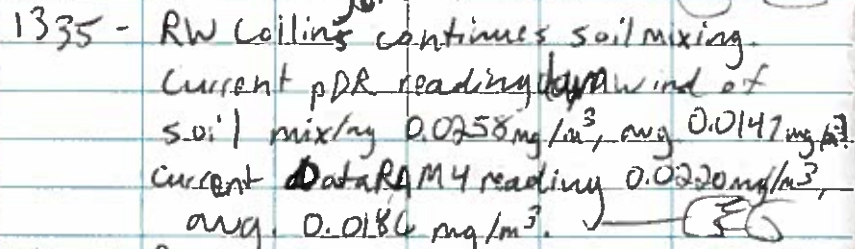 1335 - RW Collins continues soil mixing.
Current pDR reading downwind of
soil mixing 0.0258 mg/m³, avg 0.0147 mg/m³.
Current DataRAM4 reading 0.0220 mg/m³,
avg. 0.0186 mg/m³.